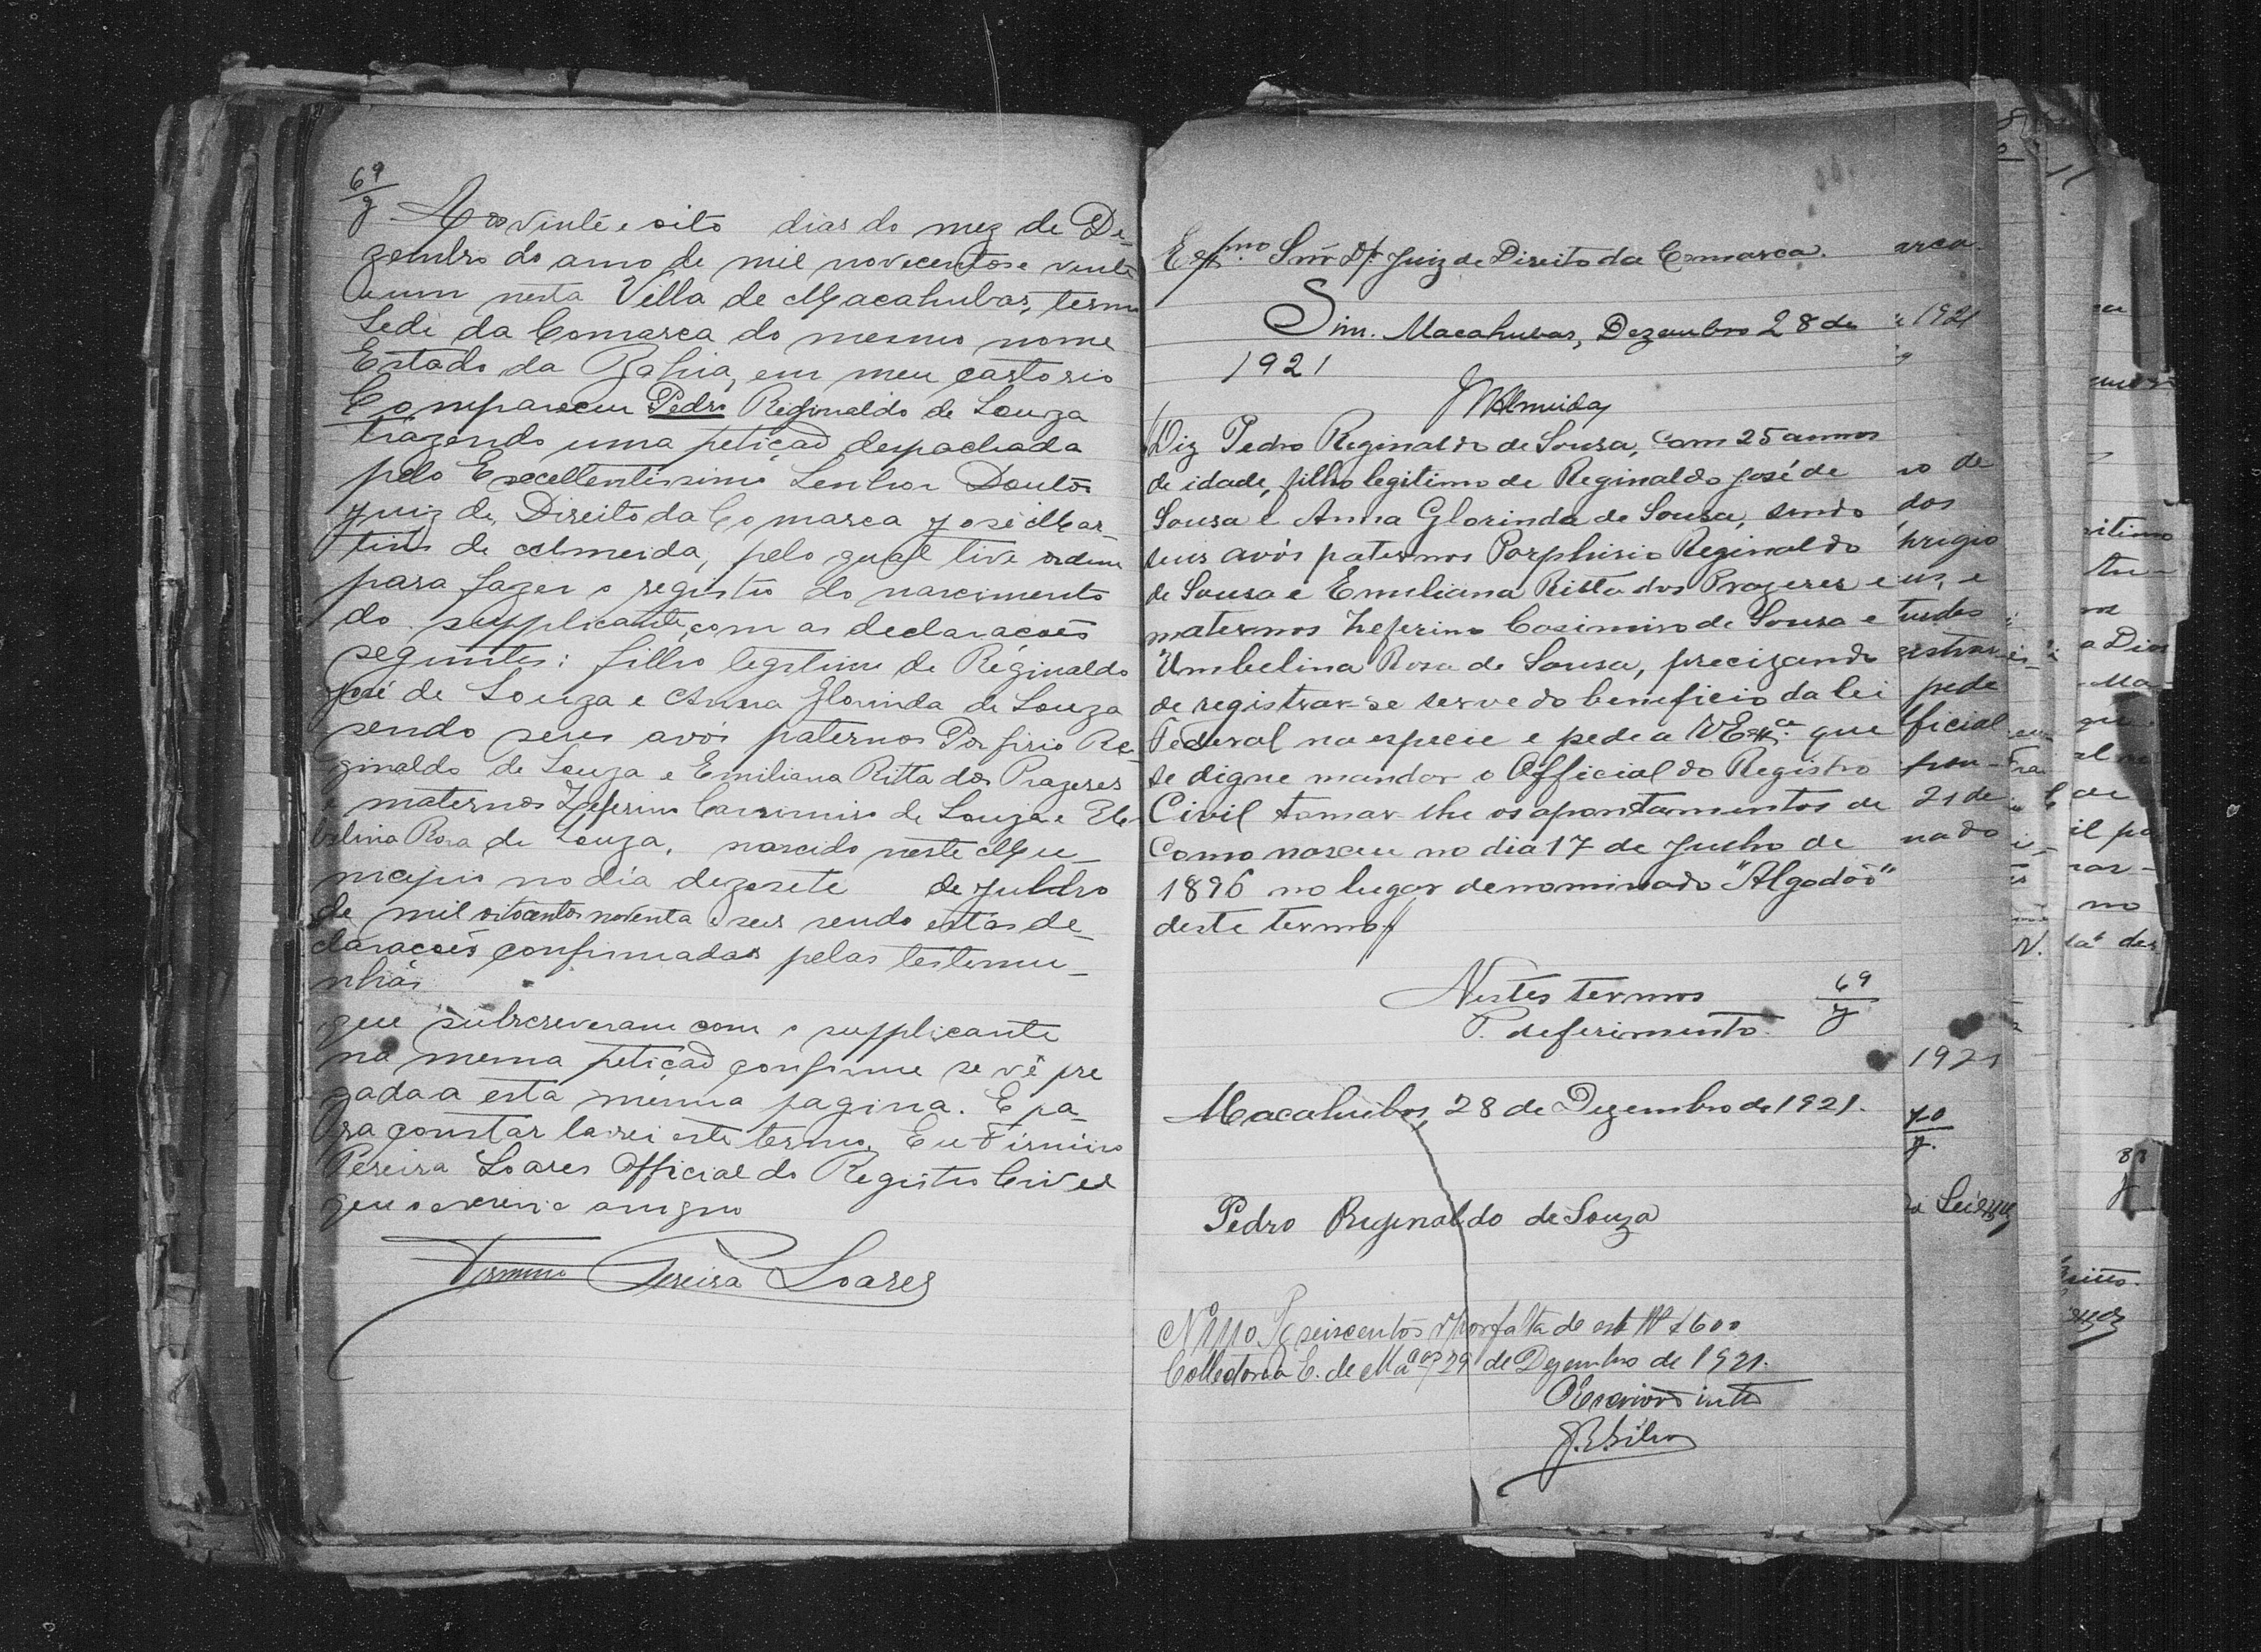 69
J
Aos vinte e oito dias do mez de De-
zembro do anno de mil novecentos e vinte
e um nesta Villa de Macahubas, termo
Sede da Comarca do mesmo nome
Estado da Bahia, em meu cartorio
Compareceu Pedro Reginaldo de Souza
trazendo uma petição despachada
pelo Excellentissimo Senhor Doutor
Juiz de Direito da Comarca José Mar-
tins de Almeida, pelo qual tive ordem
para fazer o registro do nascimento
do supplicante, com as declarações
seguintes: filho legitimo de Reginaldo
José de Souza e Anna Glorinda de Souza
sendo seus avós paternos Porfirio Re-
ginaldo de Souza e Emiliana Ritta dos Prazeres
e maternos Zeferino Cassimiro de Souza e
belina Rosa de Souza, nascido neste Mu-
nicipio no dia dezesete de Julho
de mil oitocentos noventa e seis sendo estas de-
clarações confirmadas pelas testemu-
nhas
que subscreveram com o supplicante
na mesma petição conforme se vê pre
gada a esta mesma pagina. E pa-
ra constar lavrei este termo. Eu Firmino
Pereira Soares Official do Registro Civel
que o escrevi e assigno
Firmino Pereira Soares
Exmo. Snr. Dr. Juiz de Direito da Comarca.
Sim. Macahubas, Dezembro 28 de
1921
JMAlmeida
Diz Pedro Reginaldo de Sousa, com 25 annos
de idade, filho legitimo de Reginaldo José de
Sousa e Anna Glorinda de Sousa, sendo
seus avós paternos Porphirio Reginaldo
de Sousa e Emiliana Ritta dos Prazeres e
maternos Zeferino Casimiro de Sousa e
Umbelina Rosa de Sousa, precizando
de registrar-se serve do beneficio da lei
Federal na especie e pede a V. Exca. que
se digne mandar o Official do Registro
Civil tomar-lhe os apontamentos de
como nasceu no dia 17 de Julho de
1896 no lugar denominado "Algodão"
deste termo.
Nestes termos
P. deferimento.
69
J
Macahubas, 28 de Dezembro de 1921.
Pedro Reginaldo de Souza
Pg seiscentos rs por falta de est.
Collectoria E. de Macas 29 de Dezembro de 1921.
O Escrivão into
J. B. Silva
arca.
1921
ro de
dos
us, e
pede
fficial
21 de
nado
1921
70
J.
ritimo
a Dias
il pa
no
88
J